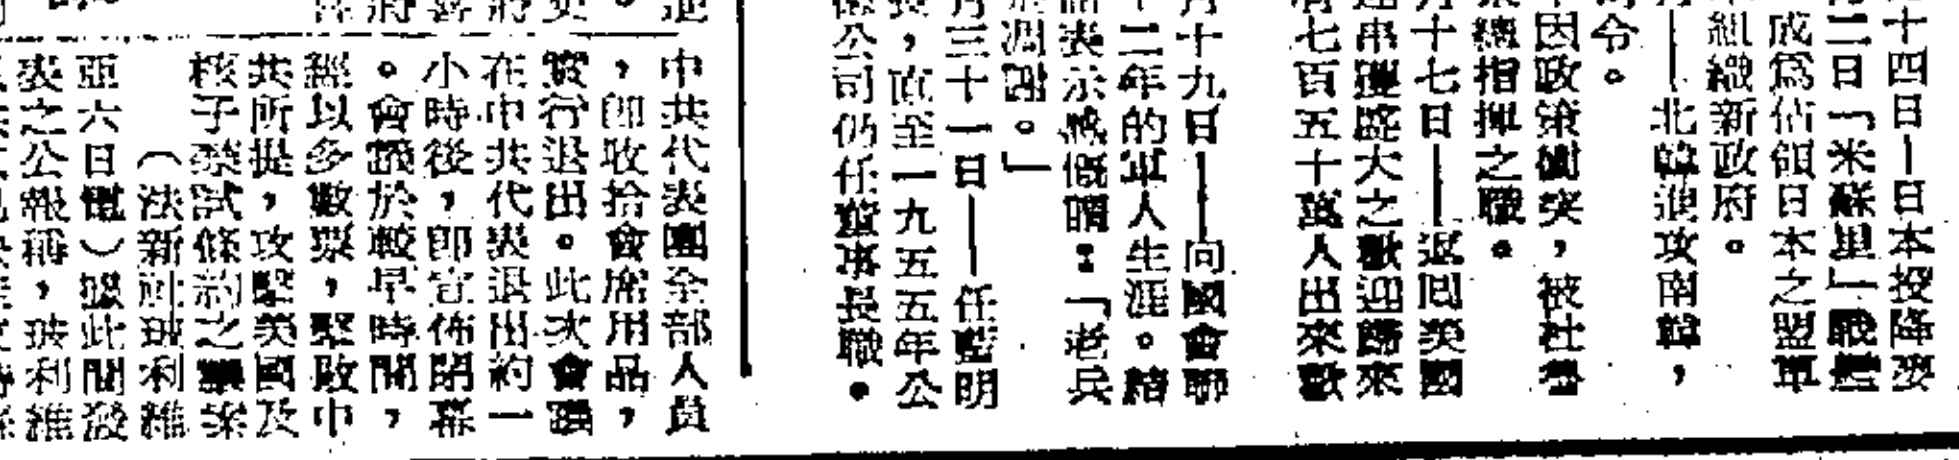 十四日—日本投降麥
二日「米蘇里」戰艦
成爲佔領日本之盟軍
組織新政府。
—北韓進攻南韓,
令。
因政策衝突,被杜魯
總指揮之職。
月十七日—返囘美國
串龐大之歡迎歸來
七百五十萬人出來歡
月十九日—向國會聯
十二年的軍人生涯。結
語表示感慨:「老兵
凋謝。」
月三十一日—任藍明
,直至一九五五年公
公司仍任董事長職。
中共代表團全部人員
,卽收拾會席用品,
實行退出。此次會議
在中共代表退出約一
小時後,卽宣佈閉幕
。會議於較早時間,
經以多數票,擊敗中
共所提,攻擊美國及
核子禁試條約之案
(法新社玻利維
亞六日電)據此間發
表之公報稱,玻利維